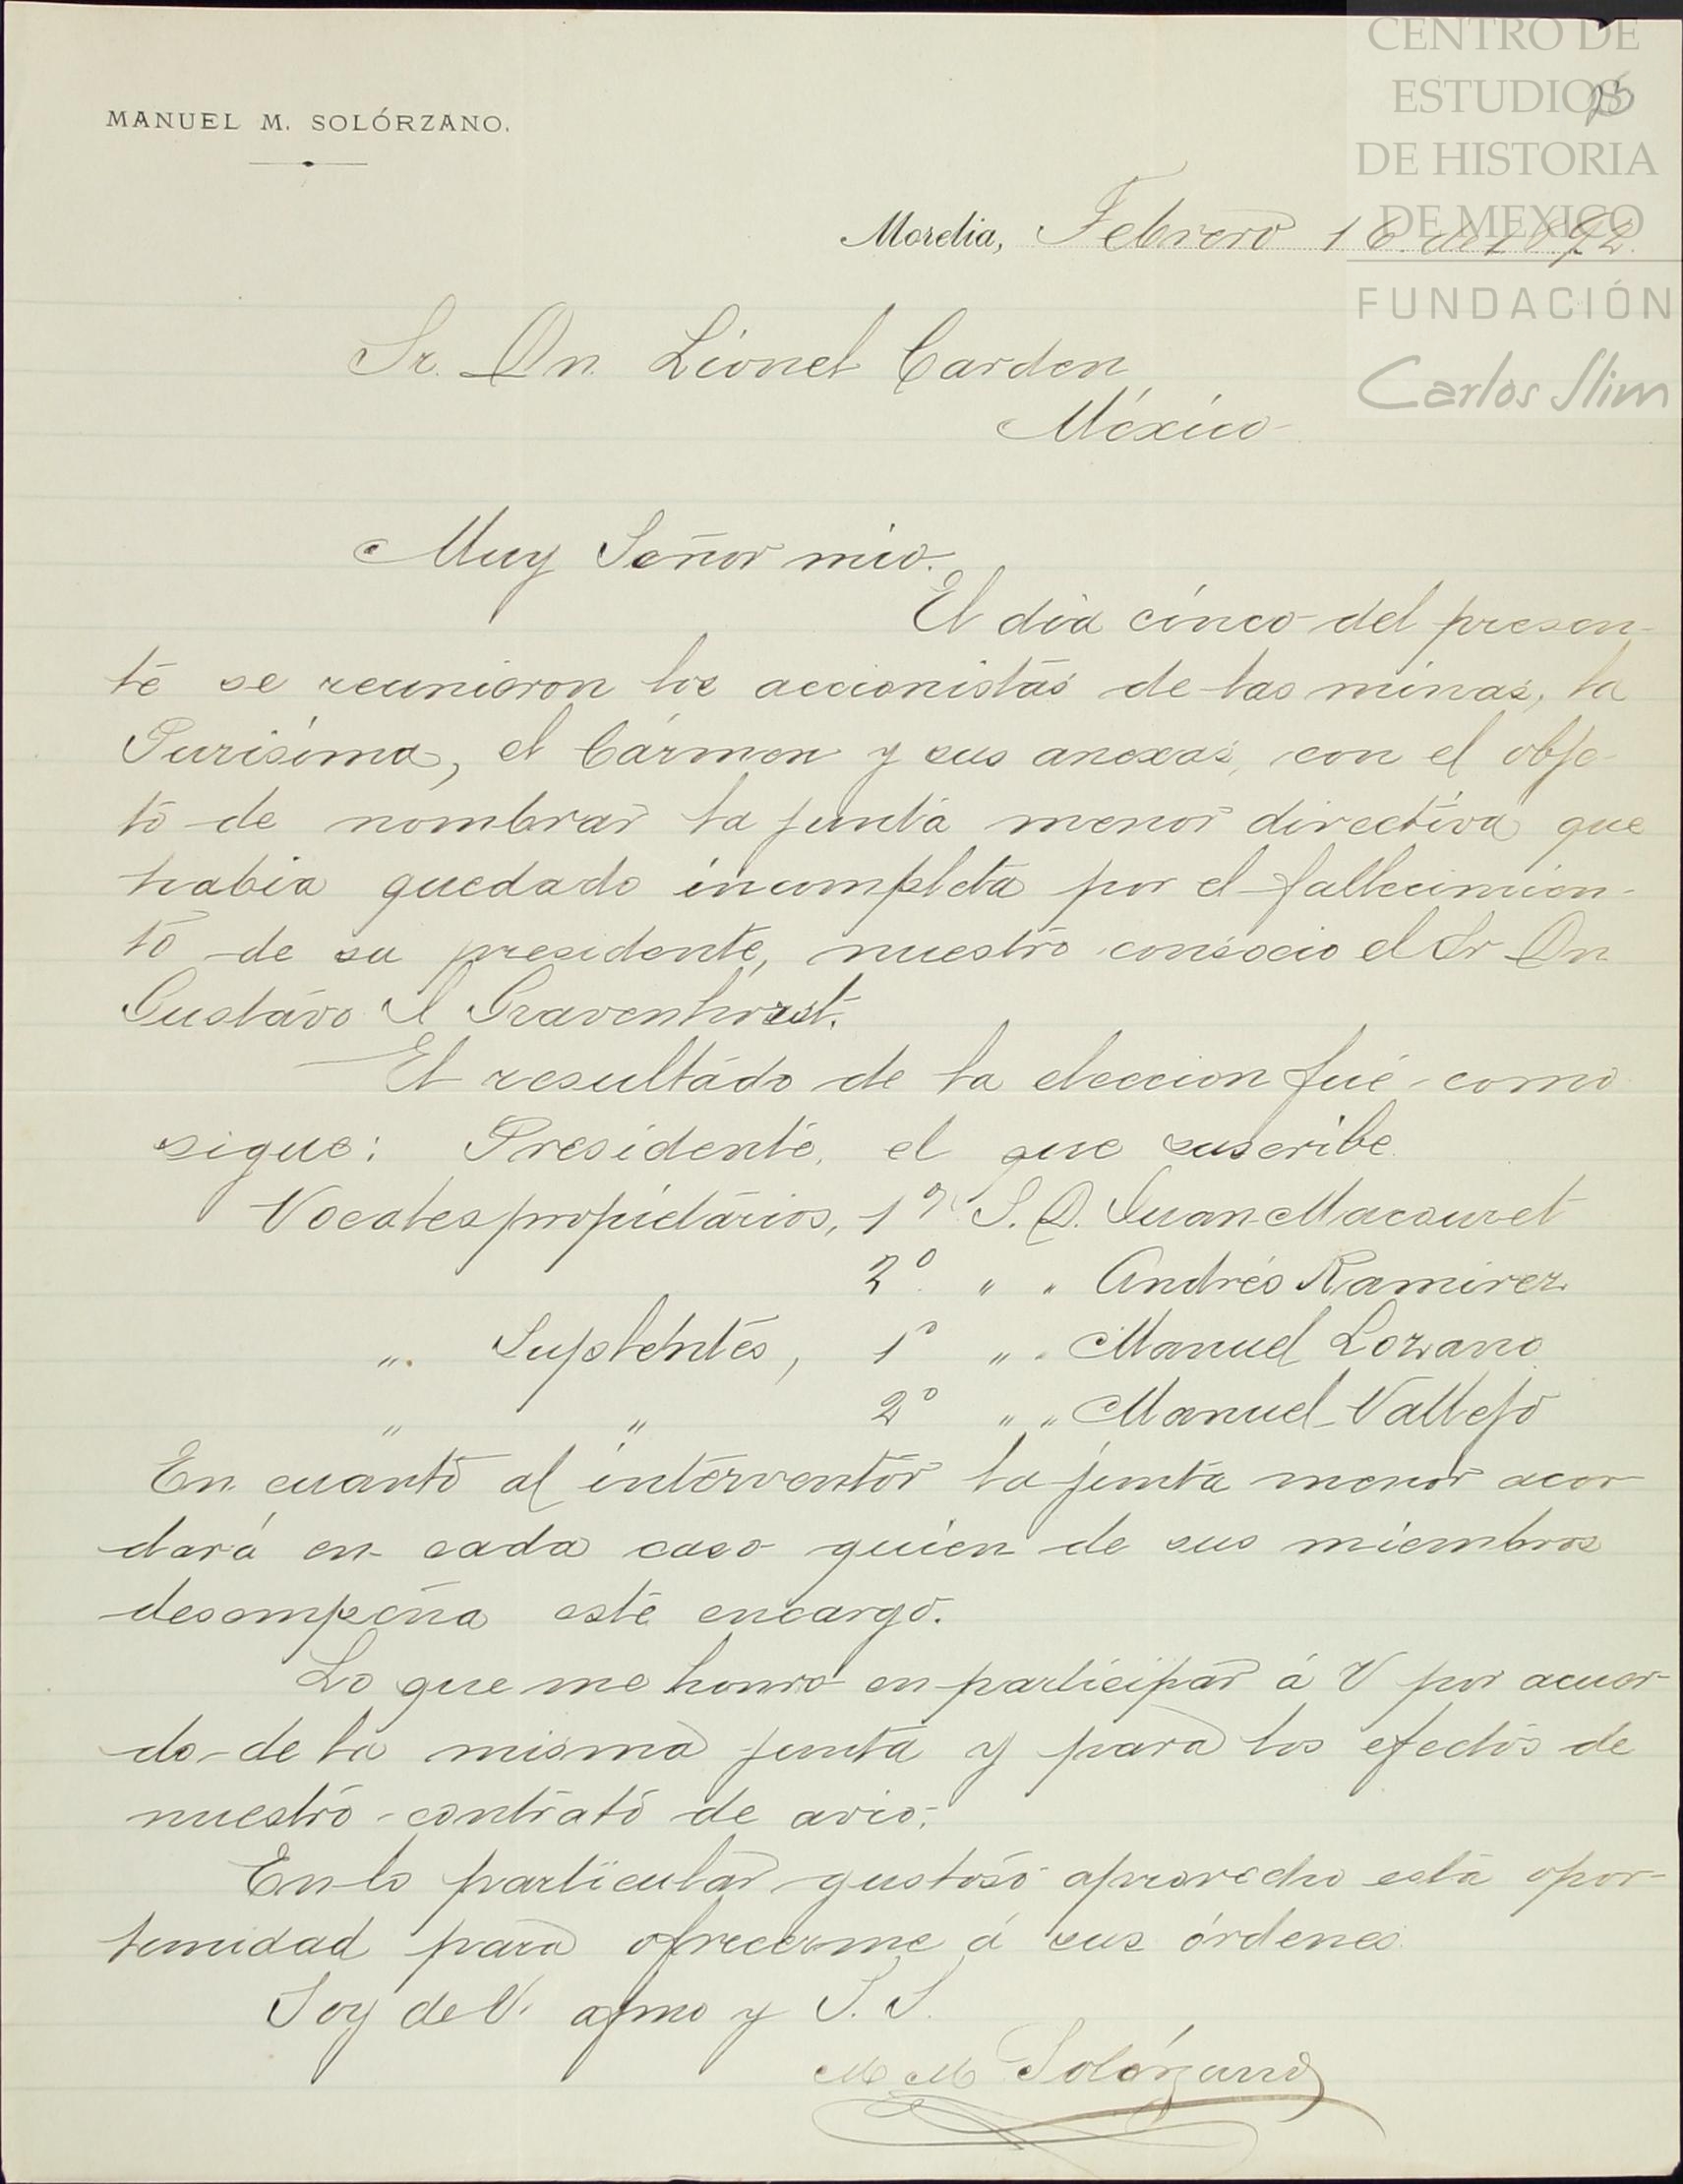 CENTRO DE
ESTUDIOS
DE HISTORIA
DE MEXICO
FUNDACIÓN
Carlos Slim
MANUEL M. SOLÓRZANO.
Morelia, Febrero 16 de 1892.
Sr. Dn. Lionel Carden
México
Muy Señor mio.
El dia cinco del presen-
te se reunieron los accionistas de las minas, la
Purísima, el Cármen y sus anexas, con el obje-
to de nombrar la junta menor directiva que
habia quedado incompleta por el fallecimien-
to de su presidente, nuestro consocio el Sr Dn
Gustavo Gravenhorst.
El resultado de la eleccion fué como
sigue: Presidente, el que suscribe.
Vocales propietarios, 1º S. D. Juan Macouzet
2º " " Andrés Ramirez
" Suplentes, 1º " " Manuel Lozano
" " 2º " " Manuel Vallejo
En cuanto al interventor la junta menor acor
dará en cada caso quien de sus miembros
desempeña este encargo.
Lo que me honro en participar á V por acuer-
do de la misma junta y para los efectos de
nuestro contrato de avio.
En lo particular gustoso aprovecho esta opor-
tunidad para ofrecerme á sus órdenes.
Soy de V. afmo y S. S.
M M Solórzano